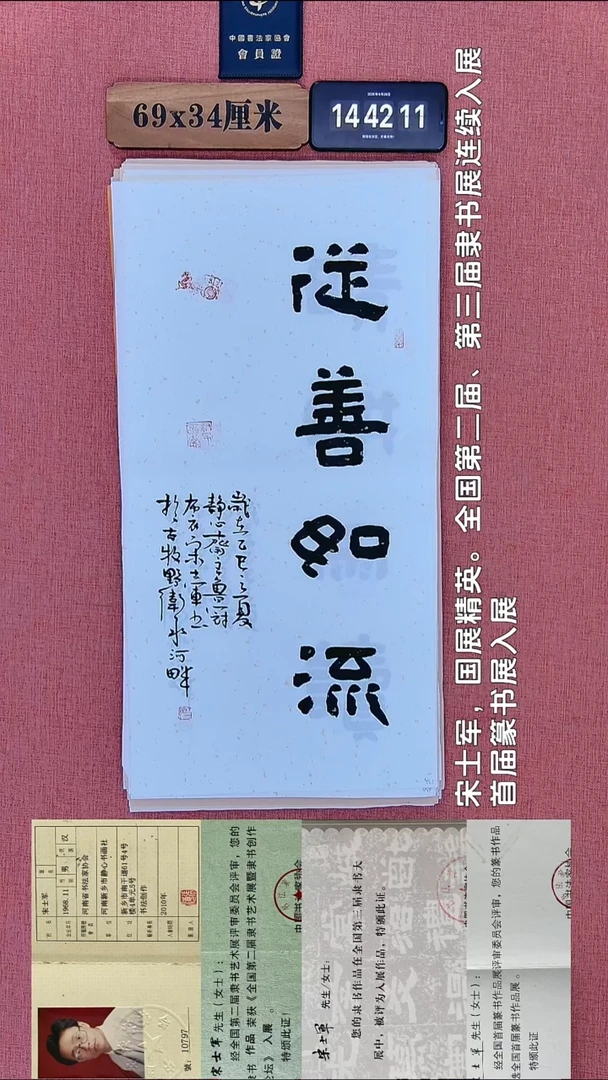 中國書法家協會
會員證
69x34厘米
14 42 11
從善如流
歲在乙巳之夏
布衣宋士軍書
於古牧野衛水河畔
宋士军，国展精英。全国第二届、第三届隶书展连续入展
首届篆书展入展
宋士军
1968.11
男
汉
河南省书法家协会
河南新乡市静心书画社
新乡市南干道61号4号
楼1单元5号
书法创作
2010年
號：10797
宋士军 先生（女士）：
经全国第二届隶书艺术展评审委员会评审，您的
隶书 作品 荣获《全国第二届隶书艺术展暨隶书创作
论坛》入展 。
特颁此证！
宋士军 先生/女士：
您的隶书作品在全国第三届隶书大
展中，被评为入展作品，特颁此证。
士军 先生（女士）：
经全国首届篆书作品展评审委员会评审，您的篆书作品
全国首届篆书作品展。
特颁此证